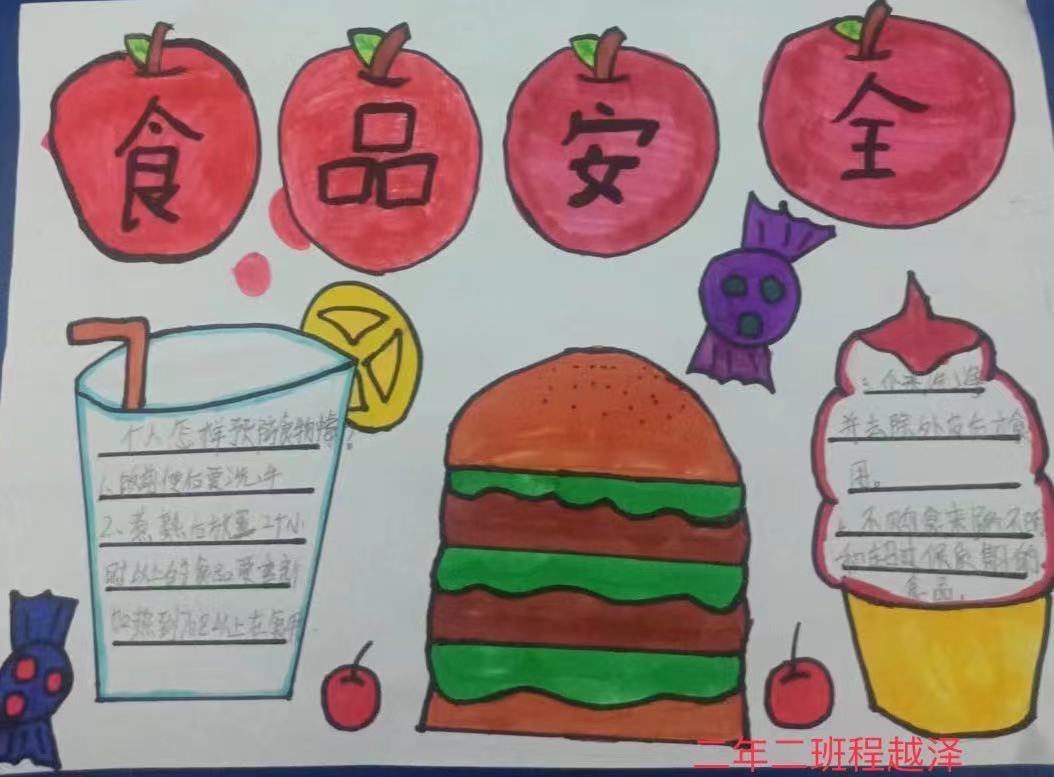 食品安全
个人怎样预防食物
1、饭前便后要洗手
2、煮熟后放置2个小
时以上的食品要重新
加热到70度以上在食用.
并去除外皮后才食
用。
不购食来路不明
和超过保质期的
食品.
二年二班程越泽